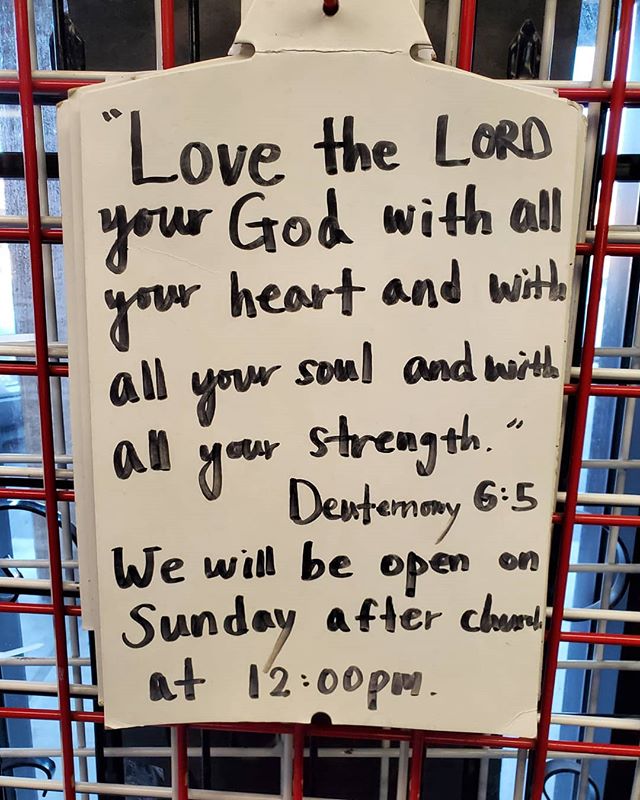 "Love the LORD
your God with all
your heart and with
all your soul and with
all your strength."
Deuternomy 6:5
We will be open on
Sunday after church
at 12:00pm.